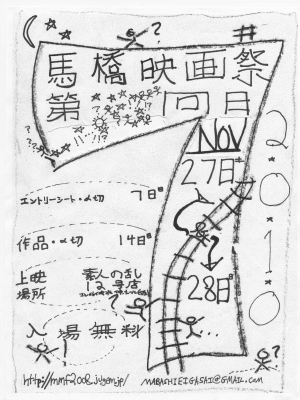 馬橋映画祭
第7回目
NOV
27日
28日
2010
エントリーシート・〆切 7日
作品・〆切 14日
上映場所 素人の乱
12号店
入場無料
MABASHIEIGASAI@GMAIL.COM